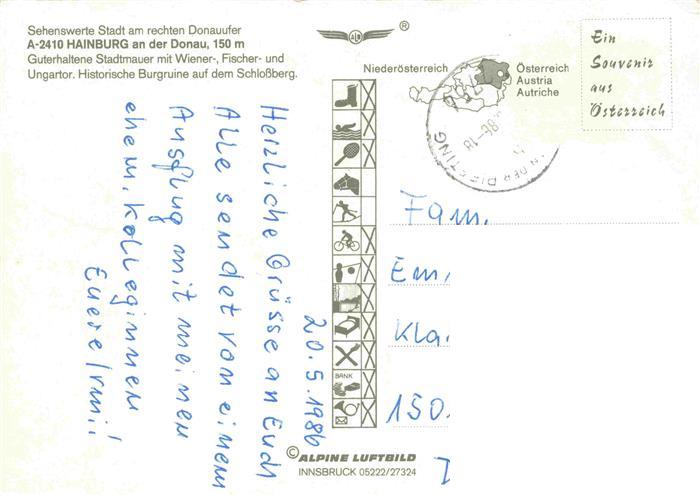 Sehenswerte Stadt am rechten Donauufer
A-2410 HAINBURG an der Donau, 150 m
Guterhaltene Stadtmauer mit Wiener-, Fischer- und
Ungartor. Historische Burgruine auf dem Schloßberg.
®
Niederösterreich
Österreich
Austria
Autriche
Ein
Souvenir
aus
Österreich
20.5.1986
Herzliche Grüsse an Euch
Alle sendet von einem
Ausflug mit meinen
ehem. Kolleginnen
Euere
Fam.
Em.
Kla.
150.
BANK
© ALPINE LUFTBILD
INNSBRUCK 05222/27324